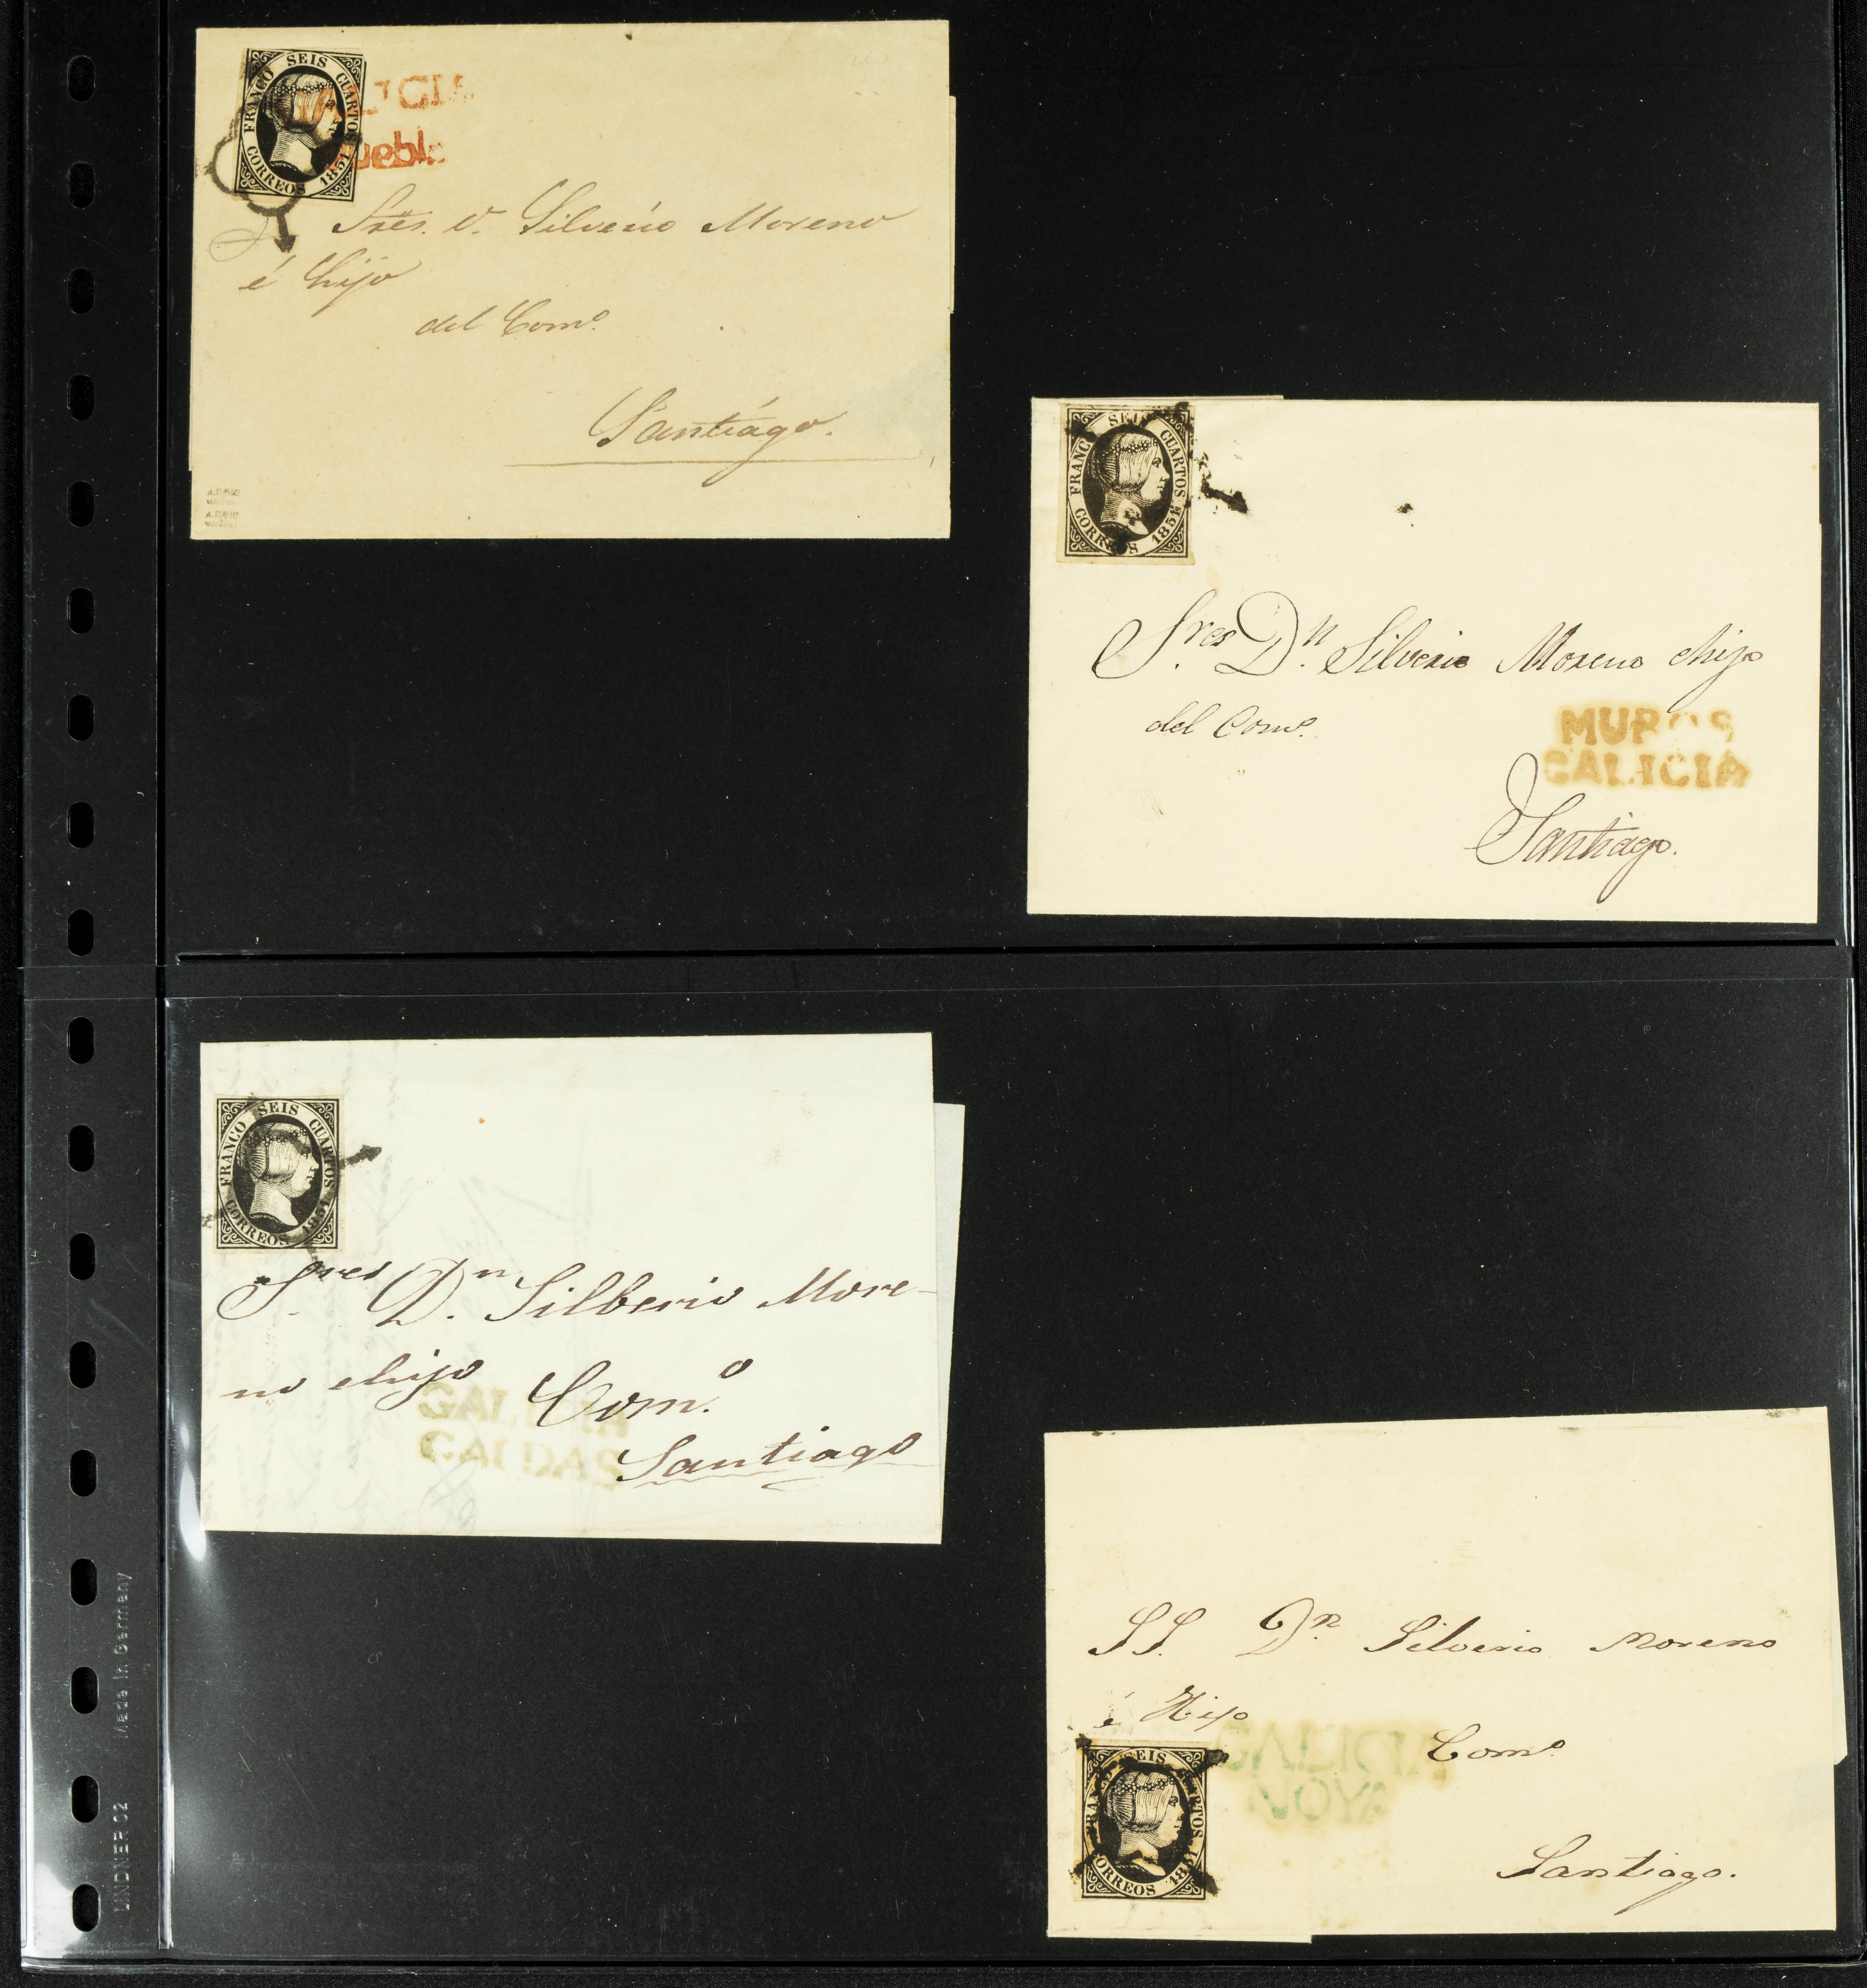 FRANCO SEIS CUARTOS
CORREOS 1851
Sres. D. Silverio Moreno
é hijo
del Comº
Santiágo.
FRANCO SEIS CUARTOS
CORREOS 1851
Sres Dn. Silverio Moreno ehijo
del Comº.
MUROS
GALICIA
Santiago.
FRANCO SEIS CUARTOS
CORREOS 1851
Sres Dn. Silberio More-
no ehijo Comº.
GALICIA
CALDAS
Santiago
SS. Dn. Silverio Moreno
é Hijo
Comº
GALICIA
NOYA
FRANCO SEIS CUARTOS
CORREOS 1851
Santiago.
LINDNER 02 Made in Germany